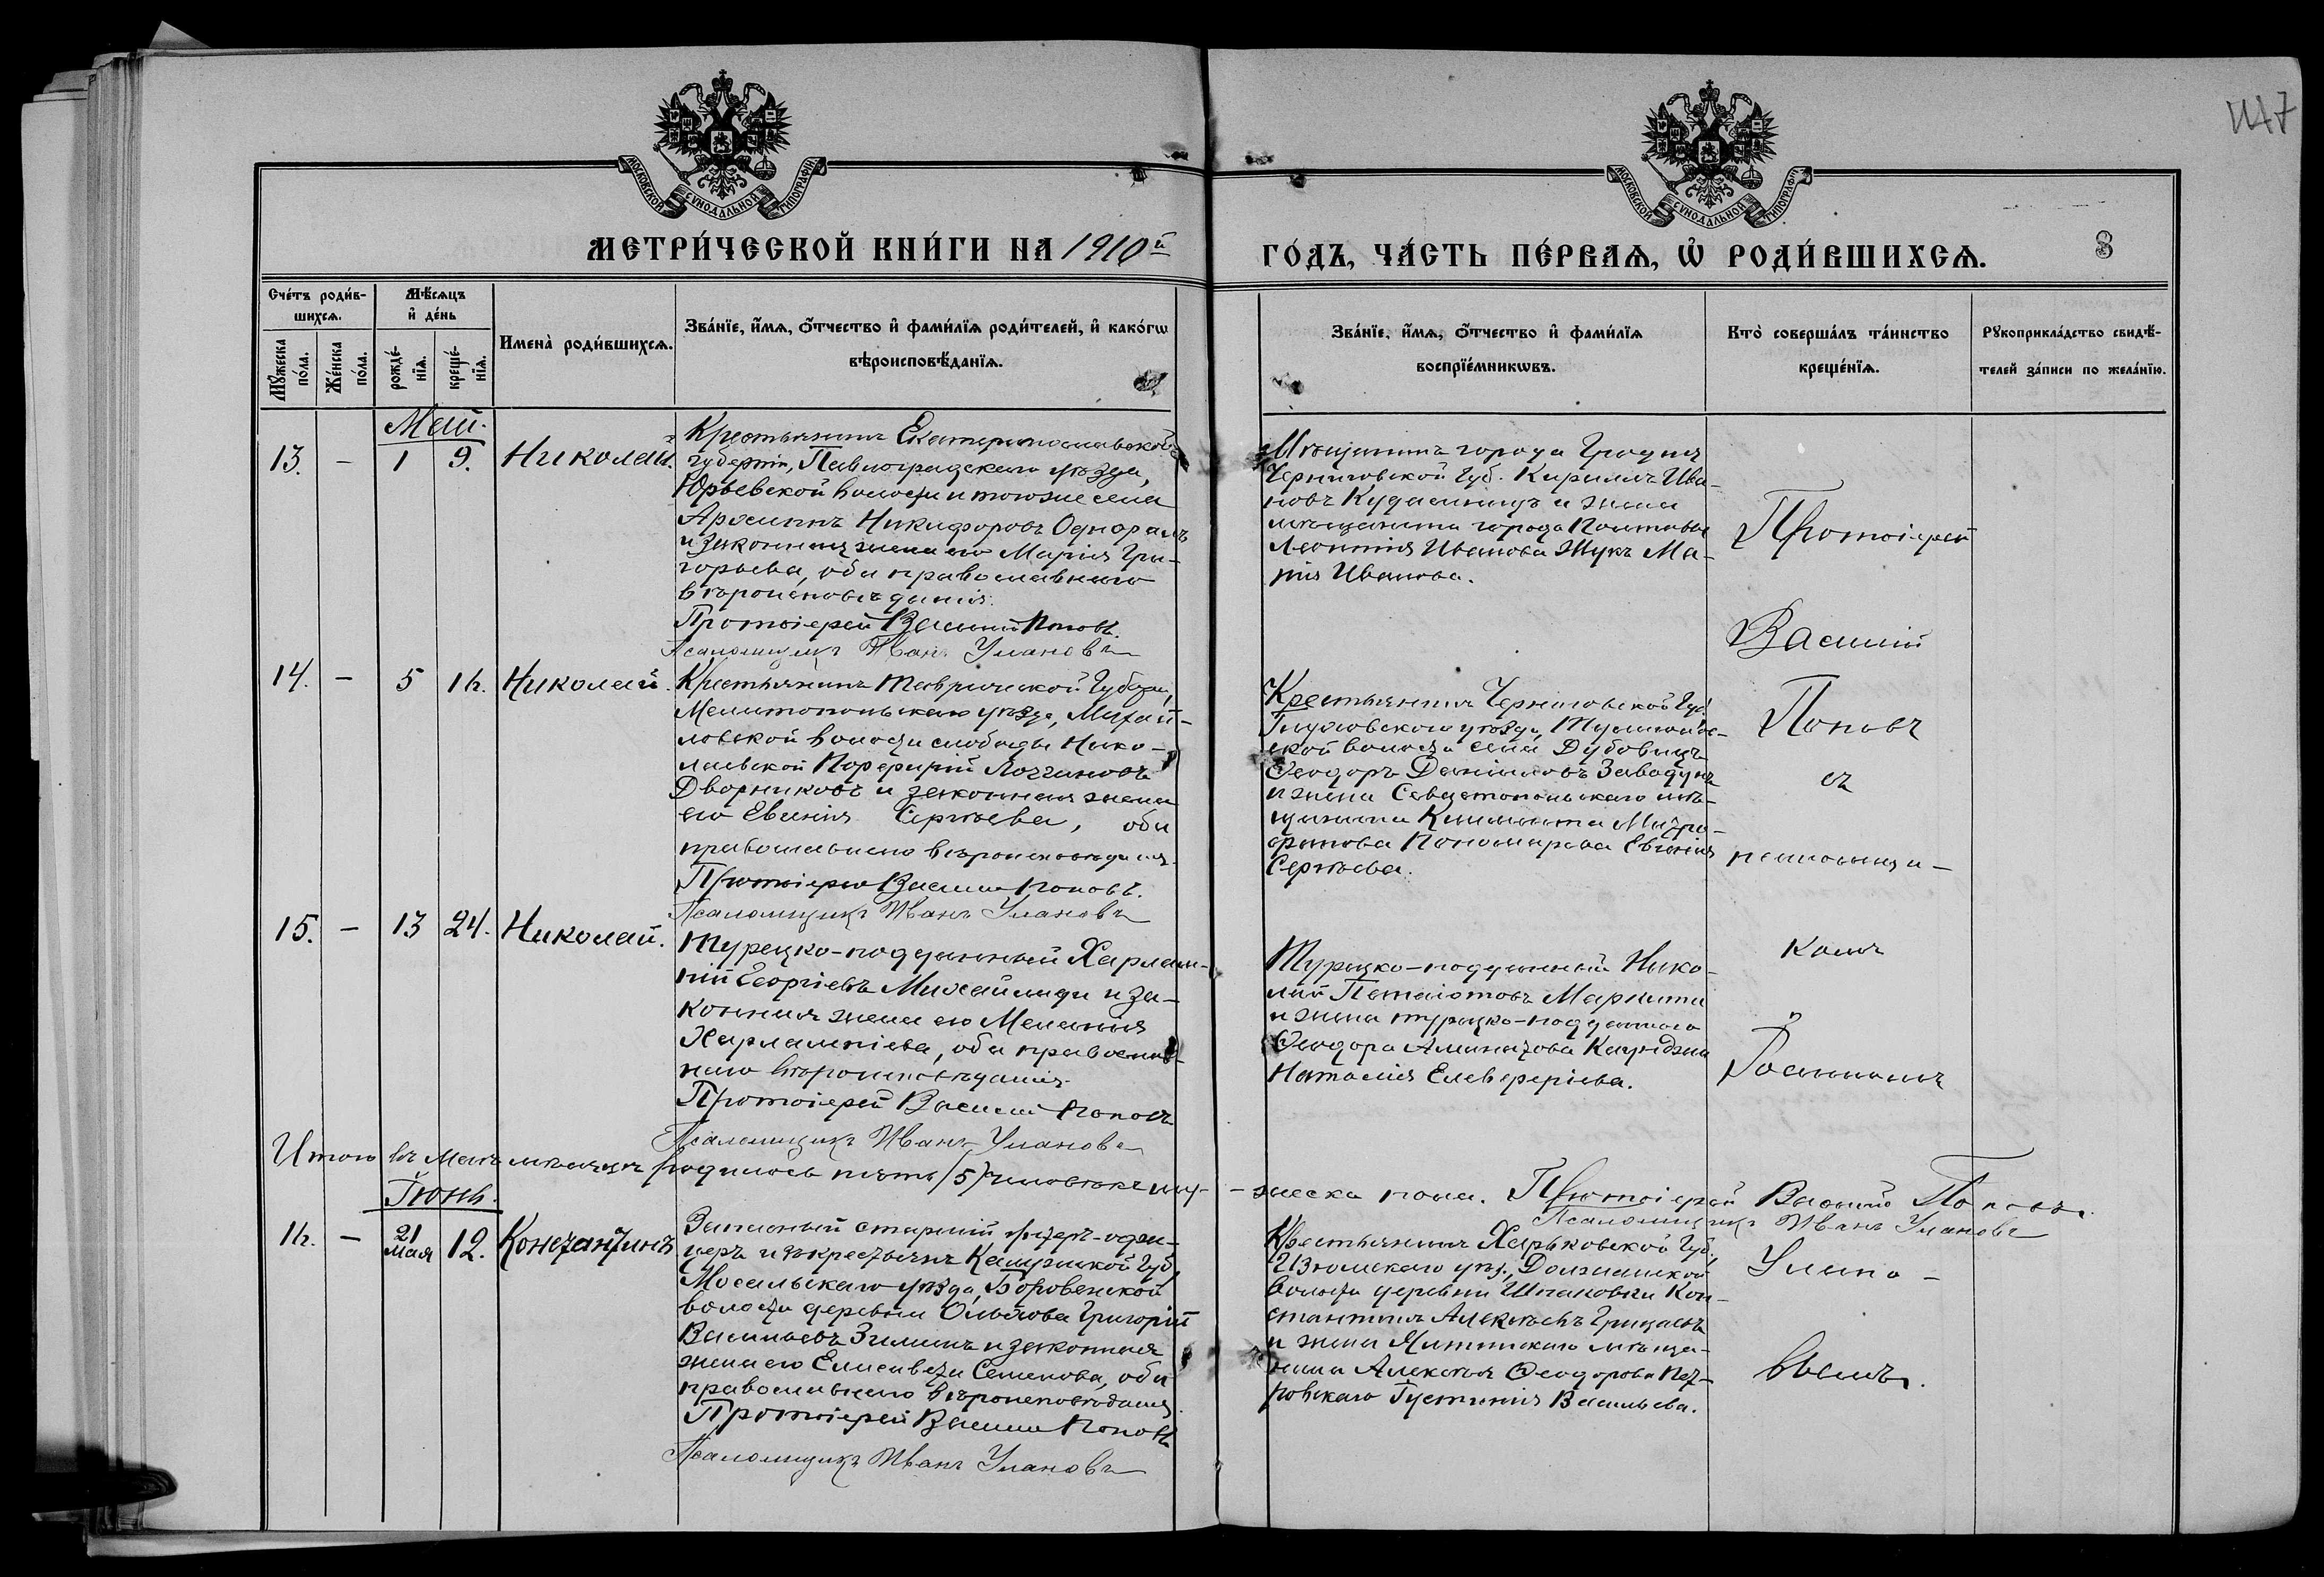 147
МОСКОВСКОЙ СѴНОДАЛЬНОЙ ТИПОГРАФІИ
МОСКОВСКОЙ СѴНОДАЛЬНОЙ ТИПОГРАФІИ
МЕТРИ́ЧЕСКОЙ КНИ́ГИ НА 1910й
ГО́ДЪ, ЧА́СТЬ ПЕ́РВАЯ, Ѡ҆ РОДИ́ВШИХСѦ.
8
Сче́тъ роди́в-
шихсѧ.
Мѣ́сѧцъ
и҆ де́нь
Мꙋ́жеска
по́ла.
Же́нска
по́ла.
рожде́-
нїѧ.
креще́-
нїѧ.
Имена̀ роди́вшихсѧ.
Зва́нїе, и҆́мѧ, ѻ҆́тчество и҆ фами́лїѧ роди́телей, и҆ како́гѡ
вѣроисповѣ́данїѧ.
Зва́нїе, и҆́мѧ, ѻ҆́тчество и҆ фами́лїѧ
воспрїе́мникѡвъ.
Кто̀ соверша́лъ та́инство
креще́нїѧ.
Рꙋкоприкла́дство свидѣ́-
телей за́писи по жела́нїю.
Май.
13. – 1 9. Николай.
Крестьянинъ Екатеринославской
губерніи, Павлоградскаго уѣзда,
Юрьевской волости и тогоже села
Никифоровъ
и законная жена его Марія Гри-
горьева, оба православнаго
вѣроисповѣданія.
Протоіерей Василій Поповъ.
Псаломщикъ Иванъ Улановъ
Мѣщанинъ города Градня
Черниговской Губ. Кириллъ Ива-
новъ и жена
мѣщанина города Полтавы
Леонтія Иванова Жукъ Ма-
рія Иванова.
Протоіерей
Василій
Поповъ
съ
псаломщи-
комъ
Іоанномъ
14. – 5 16. Николай.
Крестьянинъ Таврической Губерн,
Мелитопольскаго уѣзда, Михай-
ловской волости слободы Нико-
лаевской Порфирій Логгиновъ
Дворниковъ и законная жена
его Евгенія Сергѣева, оба
православнаго вѣроисповѣданія.
Протоіерей Василій Поповъ.
Псаломщикъ Иванъ Улановъ
Крестьянинъ Черниговской Губ.
Глуховскаго уѣзда,
ской волости села Дубовицъ
Ѳеодоръ Даніиловъ
и жена Севастопольскаго мѣ-
щанина Климента Митро-
фанова Пономарева Евгенія
Сергѣева.
15. – 13 24. Николай.
Турецко-подданный Харлам-
пій Георгіевъ Михайлиди и за-
конная жена его Меланія
Харлампіева, оба православ-
наго вѣроисповѣданія.
Протоіерей Василій Поповъ
Псаломщикъ Иванъ Улановъ
Турецко-подданный Нико-
лай Панаіотовъ
и жена турецко-подданнаго
Ѳеодора
Наталія Елевферіева.
Итого въ Маѣ мѣсяцѣ родилось пять /5/ человѣкъ му-
-жеска пола. Протоіерей Василій Поповъ.
Псаломщикъ Иванъ Улановъ
Іюнь.
16. – 21 мая 12. Константинъ
Запасный старшій унтеръ-офи-
церъ изъ крестьянъ Калужской Губ,
Мосальскаго уѣзда, Боровенской
волости деревни Григорій
Васильевъ Зиминъ и законная
жена его Елисавета Семенова, оба
православнаго вѣроисповѣданія
Протоіерей Василій Поповъ
Псаломщикъ Иванъ Улановъ
Крестьянинъ Харьковской Губ,
Изюмскаго уѣз.,
волости деревни Шпаковки Кон-
стантинъ Алексѣевъ
и жена Ялтинскаго мѣща-
нина Алексѣя Ѳеодорова Пет-
ровскаго Іустинія Васильева.
Улано-
вымъ.